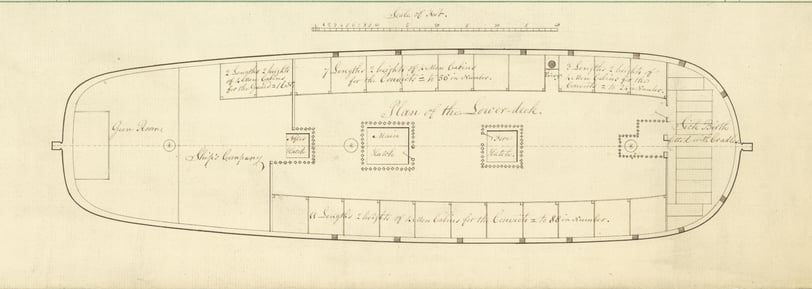 Scale of Feet.
2 Lengths 2 heights
of 4 Men Cabins
for the Guard = 16
7 Lengths 2 heights of 4 Men Cabins
for the Convicts = to 56 in Number.
3 Lengths 2 heights of
4 Men Cabins for the
Convicts = to 24 in Number
Plan of the Lower-deck.
Gun Room
Ship's Company
After
Hatch
Main
Hatch
Fore
Hatch.
Sick Berth
fitted with Cradles
11 Lengths 2 heights of 4 Men Cabins for the Convicts = to 88 in Number.